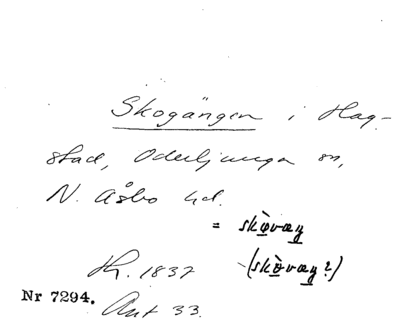 Skogången i Hag-
stad, Oderljunga sn,
N. Åsbo hd.
= skò̱væ̱g
(skò̱væ̱g?)
Kh. 1837
Nr 7294.
Ant 33.